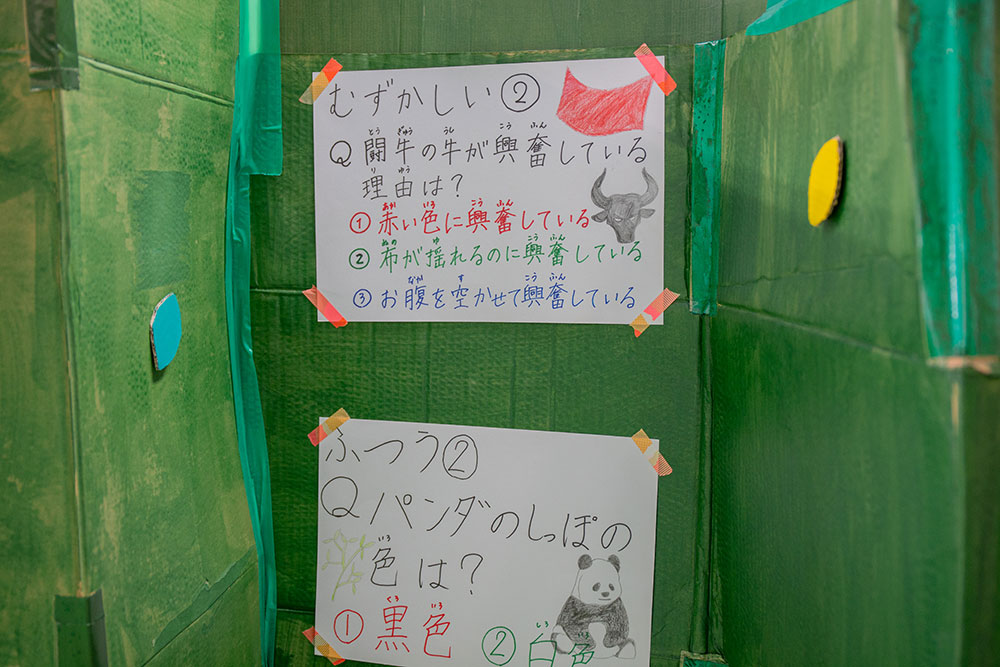 むずかしい②
Q 闘牛の牛が興奮している
理由は？
①赤い色に興奮している
②布が揺れるのに興奮している
③お腹を空かせて興奮している
ふつう②
Q パンダのしっぽの
色は？
①黒色 ②白色